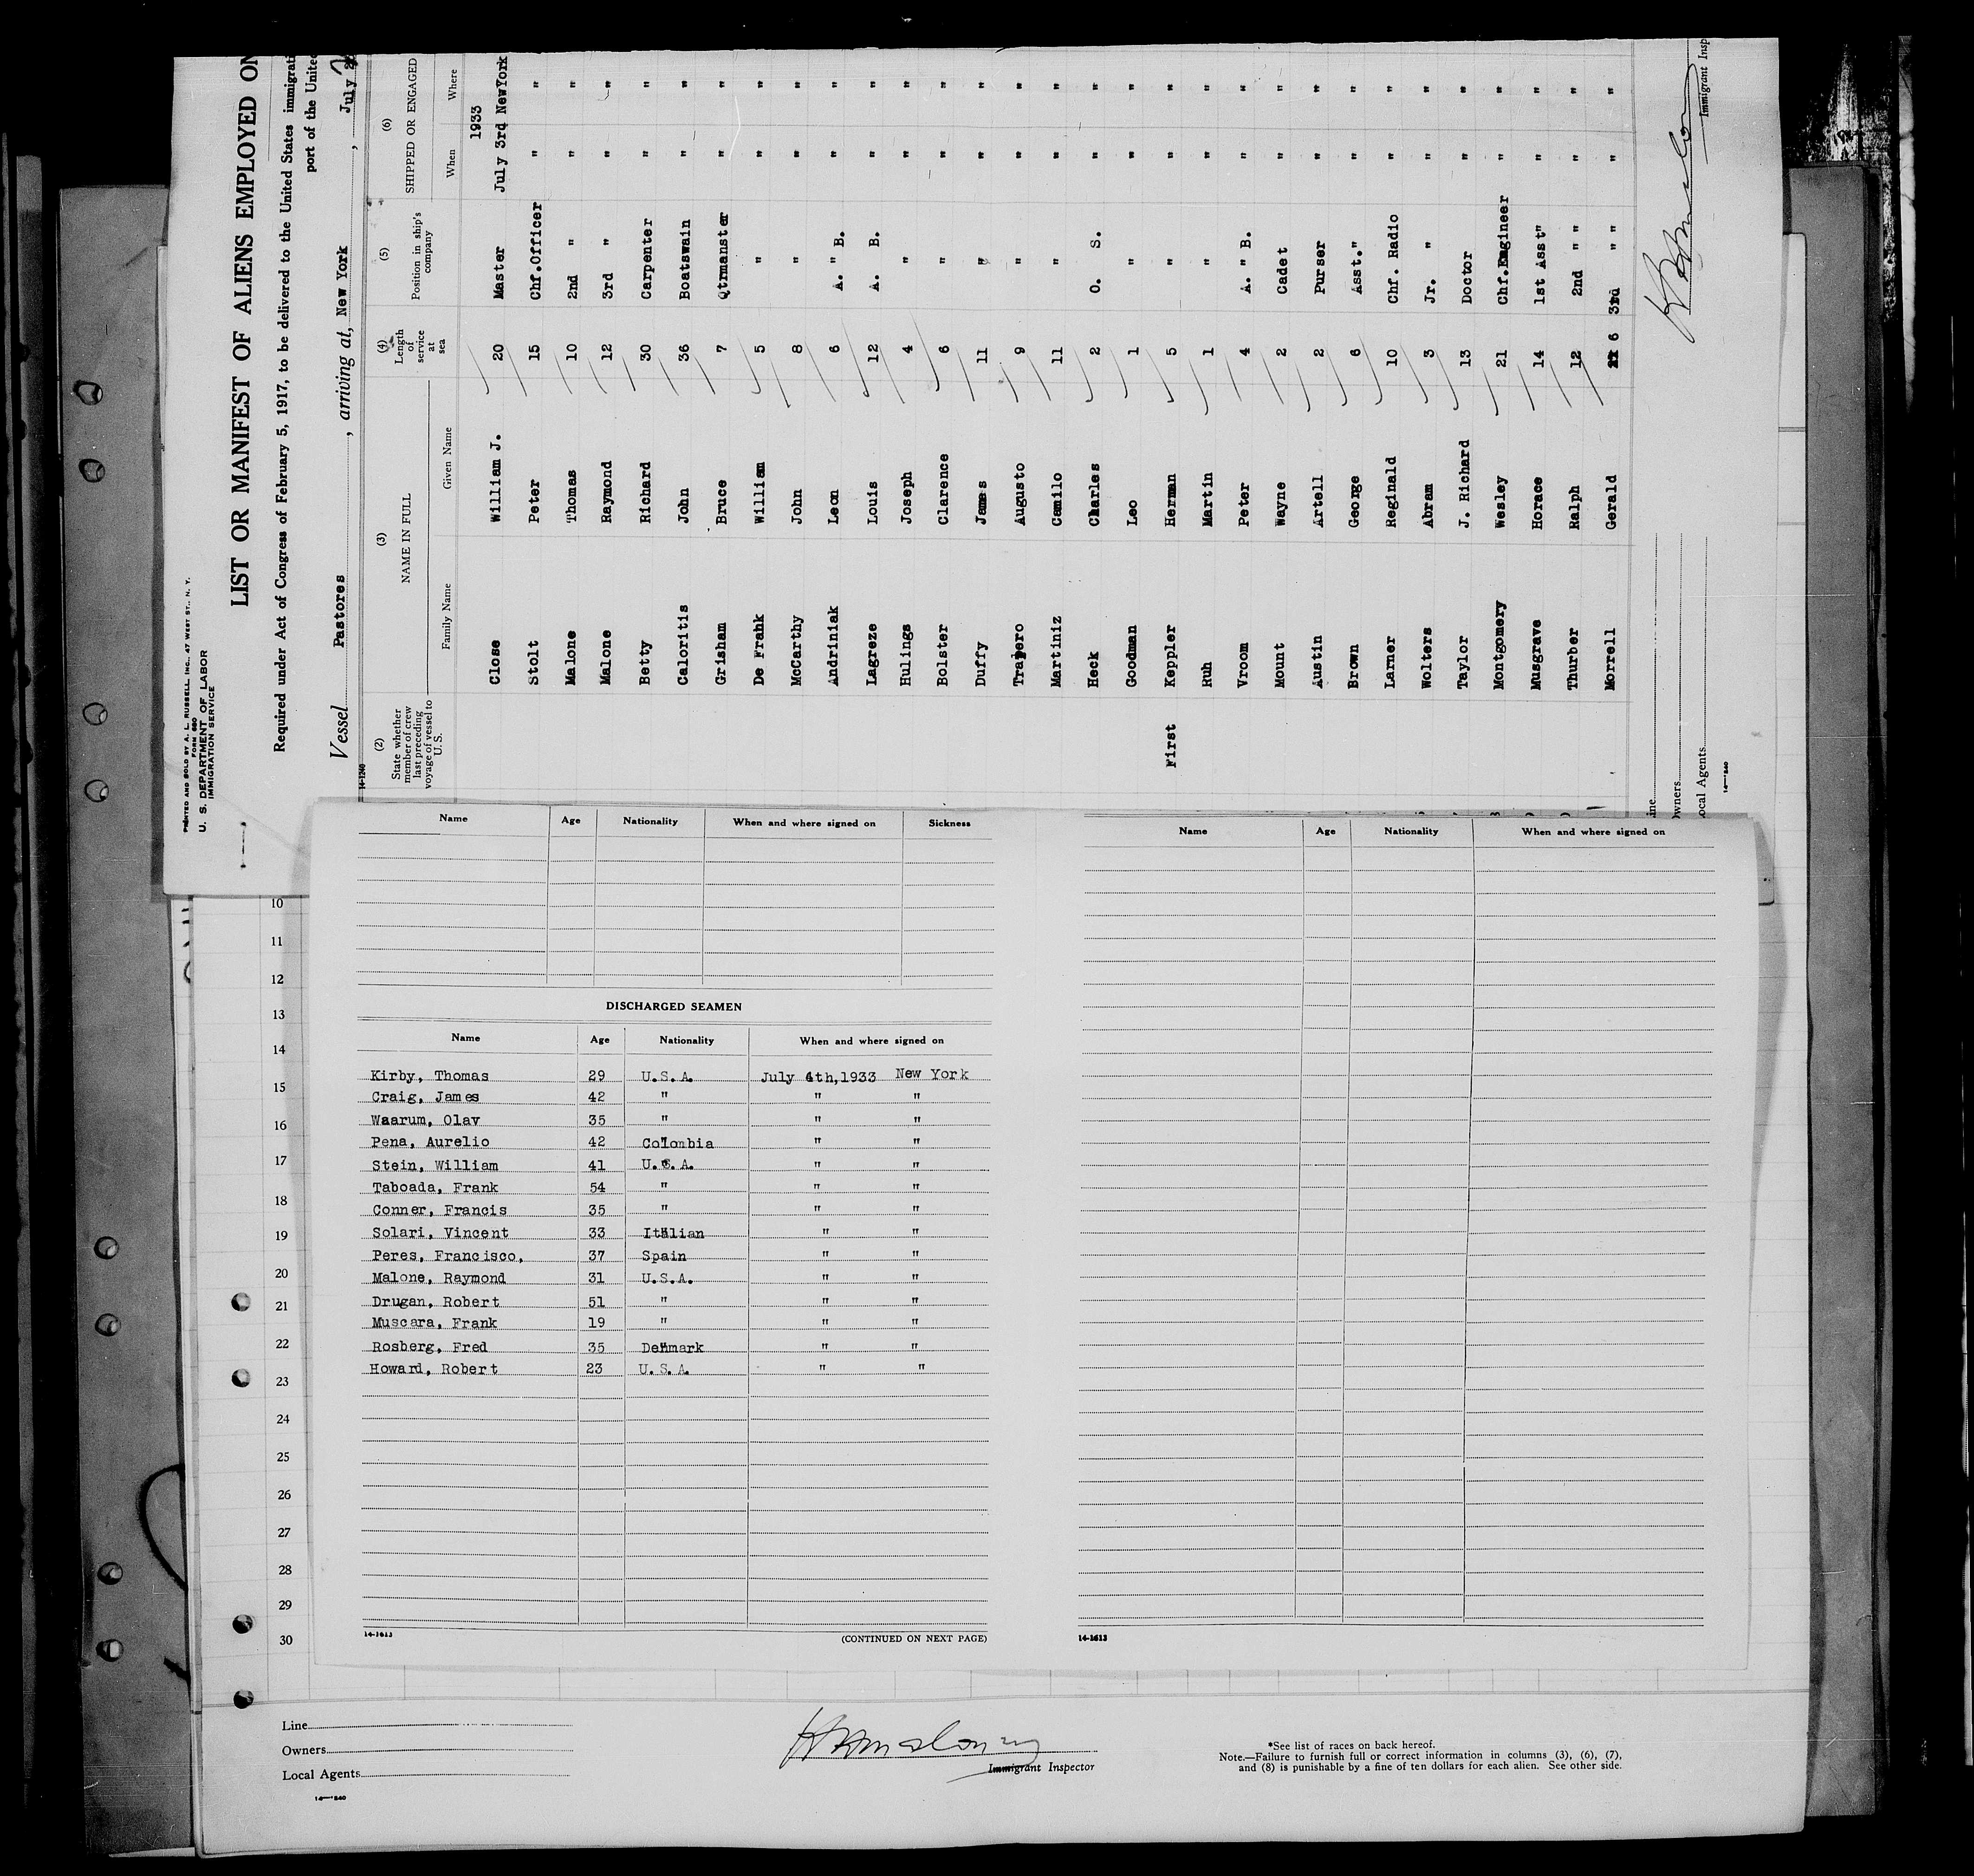 PRINTED AND SOLD BY A. L. RUSSELL, INC., 47 WEST ST., N. Y.
FORM 680
U. S. DEPARTMENT OF LABOR
IMMIGRATION SERVICE
LIST OR MANIFEST OF ALIENS EMPLOYED ON
Required under Act of Congress of February 5, 1917, to be delivered to the United States immigrati
port of the United
Vessel Pastores, arriving at, New York, July
14-1240
(2) (3) (4) (5) (6)
State whether member of crew last preceding voyage of vessel to U.S. NAME IN FULL Length of service at sea Position in ship's company SHIPPED OR ENGAGED
Family Name Given Name When Where
1933
Close William J. 20 Master July 3rd NewYork
Stolt Peter 15 Chf.Officer " "
Malone Thomas 10 2nd " " "
Malone Raymond 12 3rd " " "
Betty Richard 30 Carpenter " "
Caloritis John 36 Boatswain " "
Grisham Bruce 7 Qtrmanster " "
De Frahk William 5 " " "
McCarthy John 8 " " "
Andriniak Leon 6 A. " B. " "
Lagreze Louis 12 A. B. " "
Hulings Joseph 4 " " "
Bolster Clarence 6 " " "
Duffy James 11 " " "
Trapero Augusto 9 " " "
Martiniz Camilo 11 " " "
Heck Charles 2 O. S. " "
Goodman Leo 1 " " "
First Keppler Herman 5 " " "
Ruh Martin 1 " " "
Vroom Peter 4 A. " B. " "
Mount Wayne 2 Cadet " "
Austin Artell 2 Purser " "
Brown George 6 Asst." " "
Larner Reginald 10 Chf. Radio " "
Wolters Abram 3 Jr. " " "
Taylor J. Richard 13 Doctor " "
Montgomery Wesley 21 Chf.Engineer " "
Musgrave Horace 14 1st Asst" " "
Thurber Ralph 12 2nd " " " "
Morrell Gerald 6 3rd " " " "
Immigrant Insp
ine
wners
ocal Agents
14—1240
Name Age Nationality When and where signed on Sickness
DISCHARGED SEAMEN
Name Age Nationality When and where signed on
Kirby, Thomas 29 U.S.A. July 4th,1933 New York
Craig, James 42 " " "
Waarum, Olav 35 " " "
Pena, Aurelio 42 Colombia " "
Stein, William 41 U.S.A. " "
Taboada, Frank 54 " " "
Conner, Francis 35 " " "
Solari, Vincent 33 Italian " "
Peres, Francisco, 37 Spain " "
Malone, Raymond 31 U.S.A. " "
Drugan, Robert 51 " " "
Muscara, Frank 19 " " "
Rosberg, Fred 35 Denmark " "
Howard, Robert 23 U.S.A. " "
14-1613
(CONTINUED ON NEXT PAGE)
Name Age Nationality When and where signed on
14-1613
10
11
12
13
14
15
16
17
18
19
20
21
22
23
24
25
26
27
28
29
30
Line
Owners
Local Agents
14—1240
Immigrant Inspector
*See list of races on back hereof.
Note.—Failure to furnish full or correct information in columns (3), (6), (7),
and (8) is punishable by a fine of ten dollars for each alien. See other side.